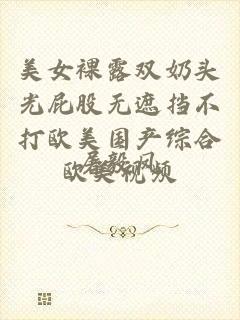 美女裸露双奶头
光屁股无遮挡不
打欧美国产综合
欧美视频